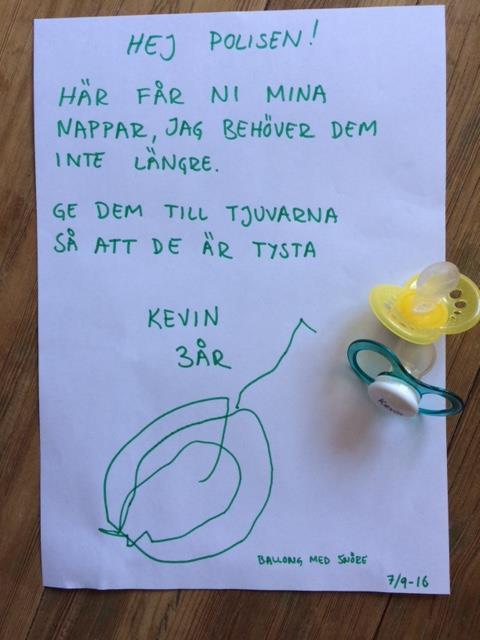 HEJ POLISEN!
HÄR FÅR NI MINA
NAPPAR, JAG BEHÖVER DEM
INTE LÄNGRE.
GE DEM TILL TJUVARNA
SÅ ATT DE ÄR TYSTA
KEVIN
3ÅR
BALLONG MED SNÖRE
7/9-16
Kevin